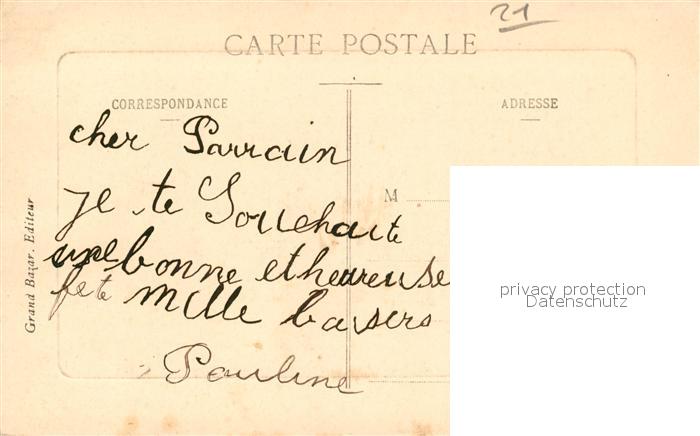 21
CARTE POSTALE
CORRESPONDANCE
ADRESSE
cher Parrain
M
je te Souehaite
une bonne et heureuse
fete mille baisers
Pauline
Grand Bazar, Editeur
privacy protection
Datenschutz